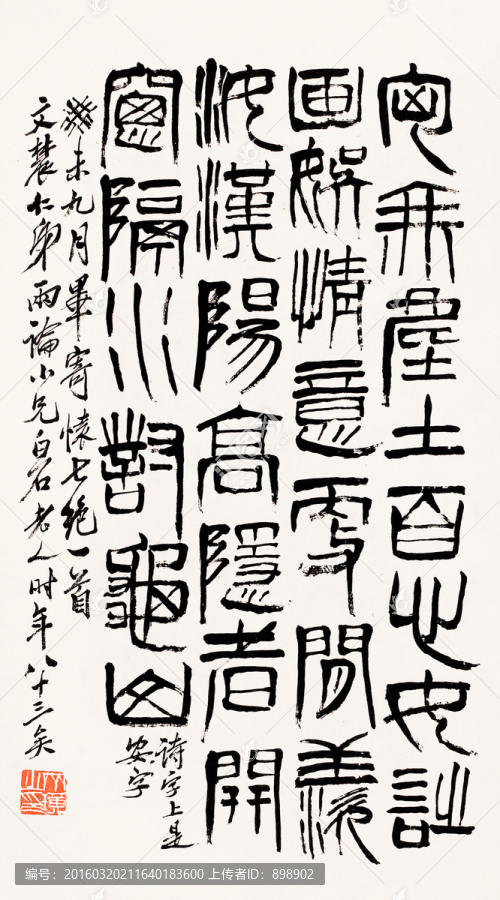 无產土自心安詩
画娱情意更間羨
汝漢陽高隱者開
窗隔水對龜山
詩字上是
安字
癸未九月畢寄懷七絶一首
文農仁弟雨論小兄白石老人时年八十三矣
编号：20160320211640183600 上传者ID：898902